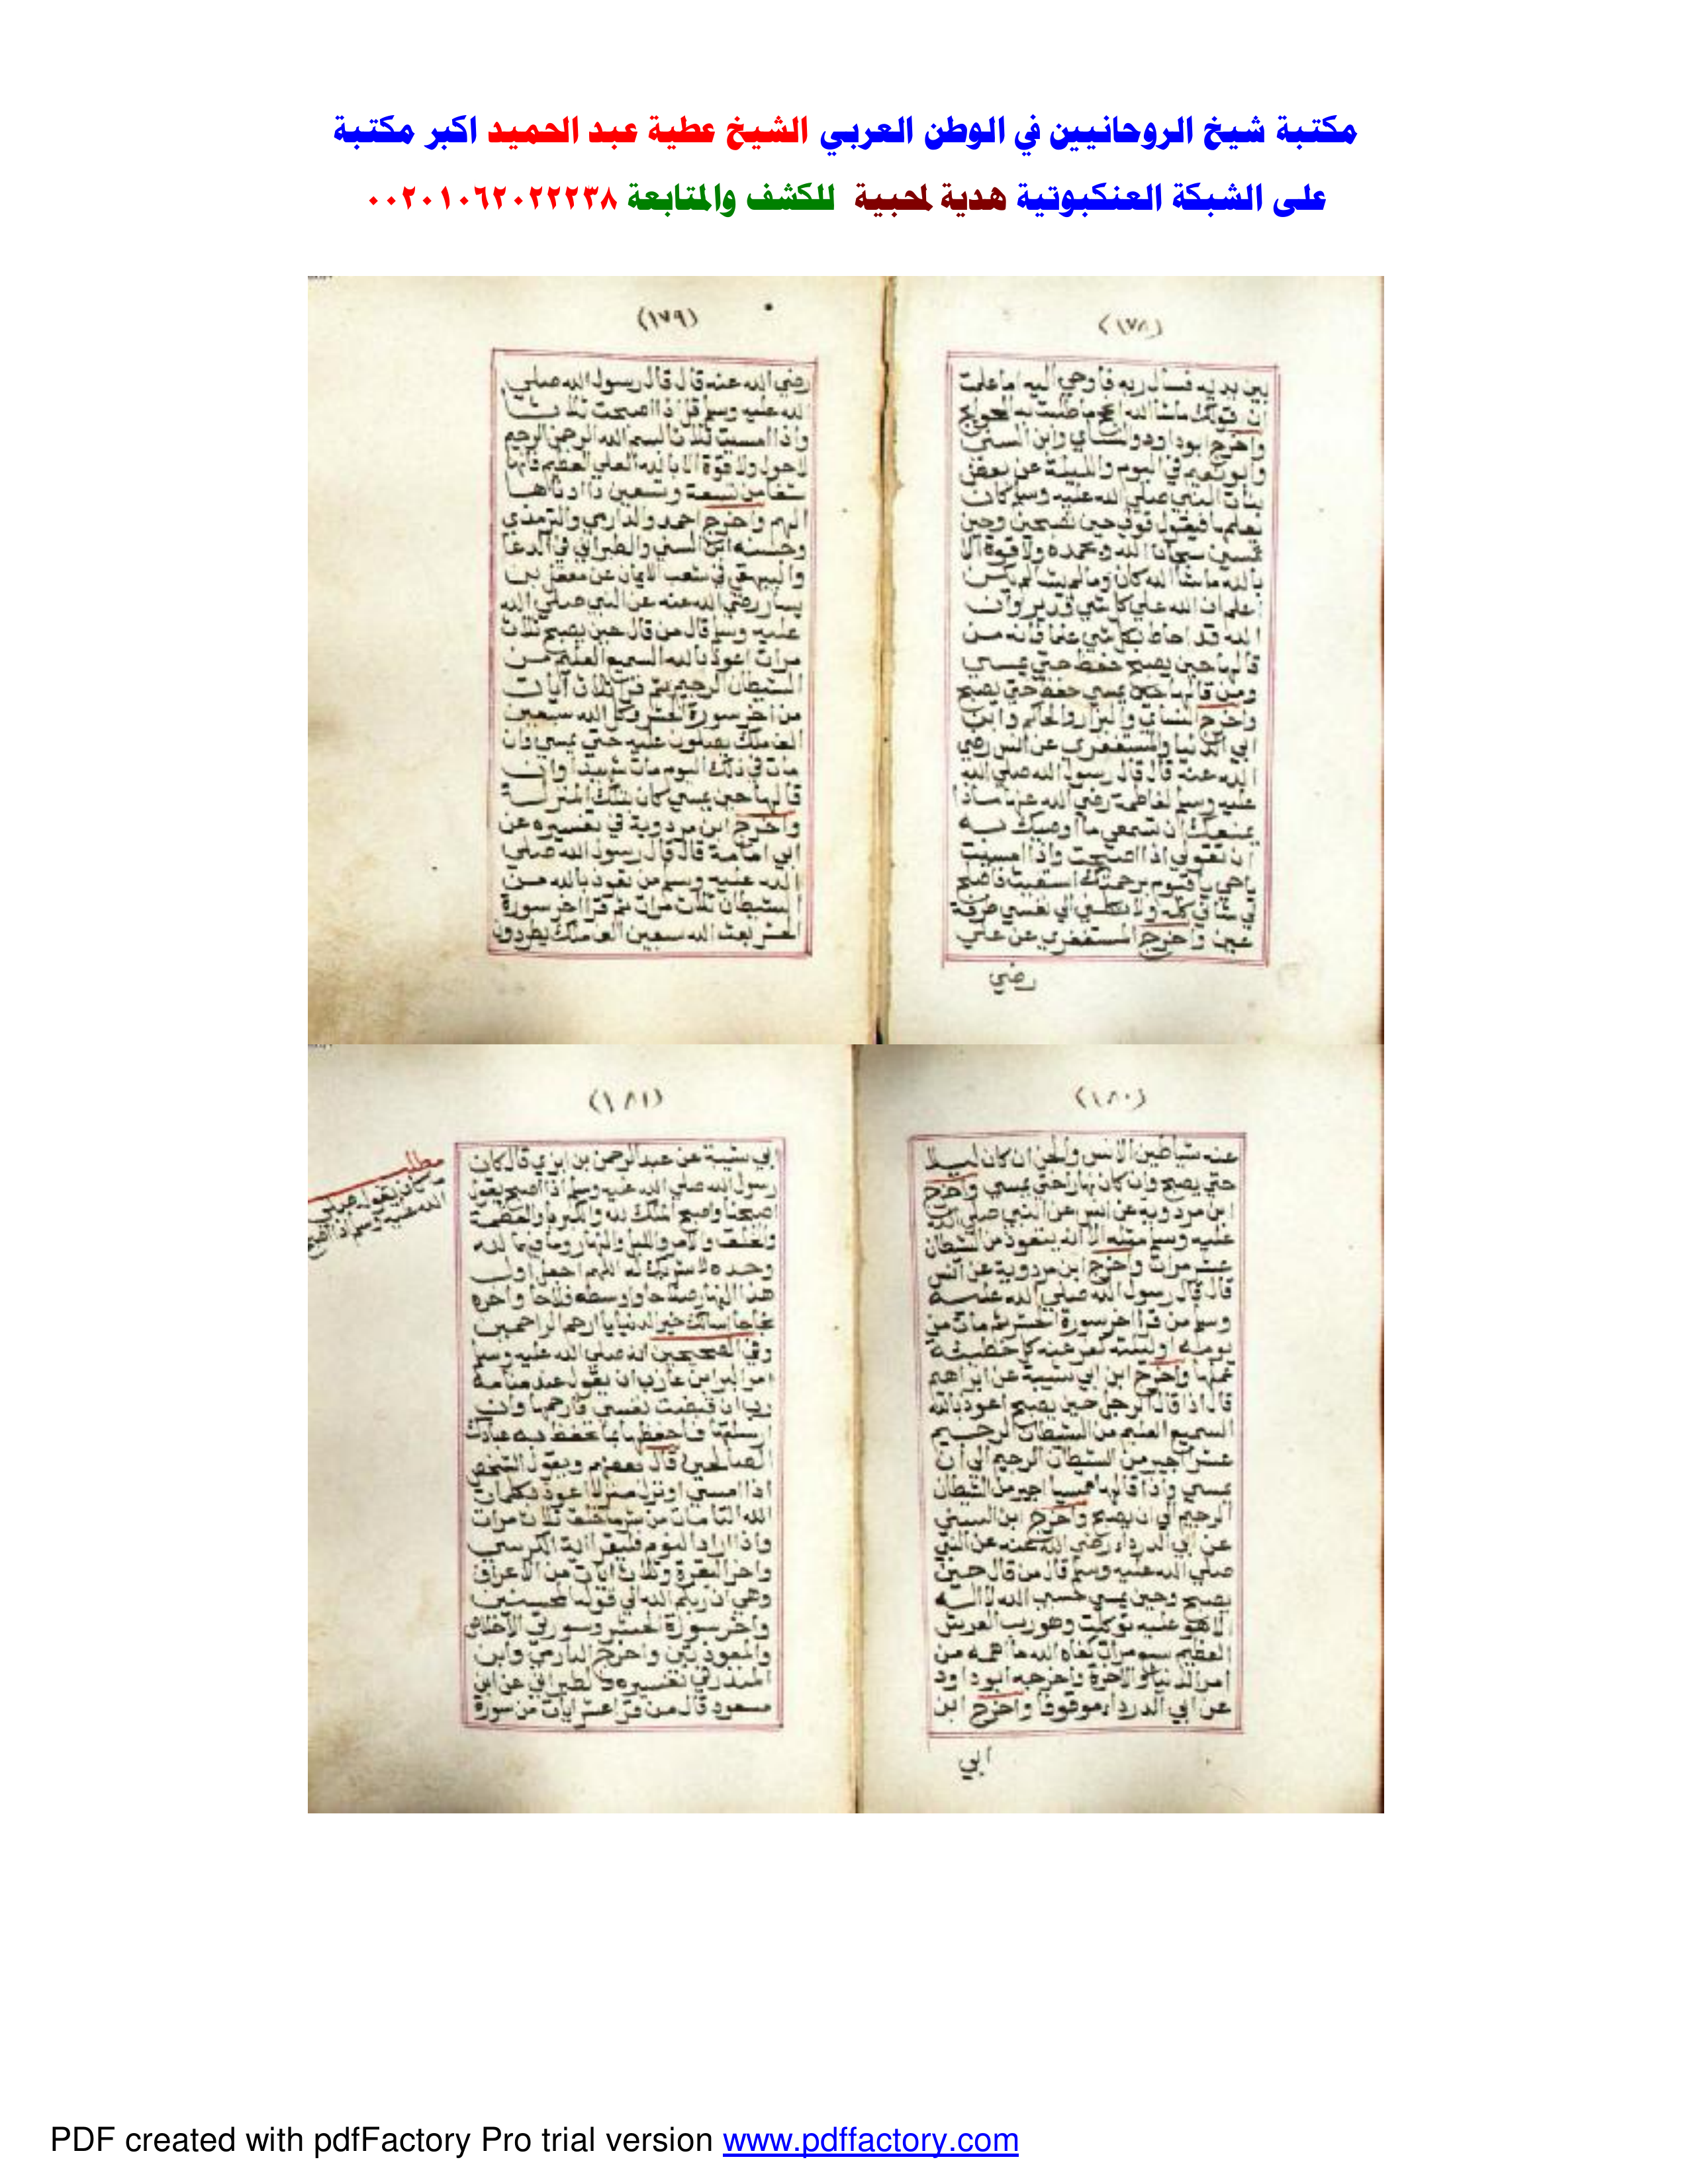 مكتبة شيخ الروحانيين في الوطن العربي الشيخ عطية عبد الحميد اكبر مكتبة
على الشبكة العنكبوتية هدية لمحبية للكشف والمتابعة ٠٠٢٠١٠٦٢٠٢٢٢٣٨
(١٧٨)
بين يديه فسال ربه فاوحي اليه اما علمت
ان قولك ماشاالله انجح ما طلبت به الحوايج
واخرج ابوداود والنساي وابن السني
وابو نعيم في اليوم والليلة عن بعض
بنات النبي صلي الله عليه وسلم كان
يعلمها فيقول قولي حين تصبحين وحين
تمسين سبحان الله وبحمده ولا قوة الا
بالله ماشاالله كان ومالم يشا لم يكن
اعلم ان الله علي كل شي قدير وان
الله قد احاط بكل شي علما فانه من
قالها حين يصبح حفظ حتي يمسي
ومن قالها حين يمسي حفظ حتي يصبح
واخرج النساي والبزار والحاكم وابن
ابي الدنيا والمستغفري عن انس رضي
الله عنه قال قال رسول الله صلي الله
عليه وسلم لفاطمة رضي الله عنها ماذا
يمنعك ان تسمعي ما اوصيك به
ان تقولي اذا اصبحت واذا امسيت
ياحي ياقيوم برحمتك استغيث فاصلح
لي شاني كله ولا تكلني الي نفسي طرفة
عين واخرج المستغفري عن علي
رضي
(١٧٩)
رضي الله عنه قال قال رسول الله صلي
الله عليه وسلم قل اذا اصبحت ثلاثا
واذا امسيت ثلاثا بسم الله الرحمن الرحيم
لاحول ولا قوة الا بالله العلي العظيم فانها
شفا من تسعة وتسعين داادناها
الهم واخرج احمد والدارمي والترمذي
وحسنه ابن السني والطبراني في الدعا
والبيهقي في شعب الايمان عن معقل بن
يسار رضي الله عنه عن النبي صلي الله
عليه وسلم قال من قال حين يصبح ثلاث
مرات اعوذ بالله السميع العليم من
الشيطان الرجيم ثم قرا ثلاث آيات
من اخر سورة الحشر وكل الله سبعين
الف ملك يصلون عليه حتي يمسي وان
مات في ذلك اليوم مات شهيدا وان
قالها حين يمسي كان بتلك المنزلة
واخرج ابن مردوية في تفسيره عن
ابي امامة قال قال رسول الله صلي
الله عليه وسلم من تعوذ بالله من
الشيطان ثلاث مرات ثم قرا اخر سورة
الحشر بعث الله سبعين الف ملك يطردون
(١٨٠)
عنه شياطين الانس والجن ان كان ليلا
حتي يصبح وان كان نهارا حتي يمسي واخرج
ابن مردوية عن انس عن النبي صلي الله
عليه وسلم مثله الا انه يتعوذ من الشيطان
عشر مرات واخرج ابن مردوية عن انس
قال قال رسول الله صلي الله عليه
وسلم من قرا اخر سورة الحشر ثم مات من
يومه او ليلته كفر عنه كل خطيئة
عملها واخرج ابن ابي شيبة عن ابراهيم
قال اذا قال الرجل حين يصبح اعوذ بالله
السميع العليم من الشيطان الرجيم
عشرا اجير من الشيطان الرجيم الي ان
يمسي واذا قالها ممسيا اجير من الشيطان
الرجيم الي ان يصبح واخرج ابن السني
عن ابي الدرداء رضي الله عنه عن النبي
صلي الله عليه وسلم قال من قال حين
يصبح وحين يمسي حسبي الله لا اله
الا هو عليه توكلت وهو رب العرش
العظيم سبع مرات كفاه الله ما اهمه من
امر الدنيا والاخرة واخرجه ابوداود
عن ابي الدرداء موقوفا واخرج ابن
ابي
(١٨١)
ابي شيبة عن عبد الرحمن بن ابزي قال كان
رسول الله صلي الله عليه وسلم اذا اصبح يقول
اصبحنا واصبح الملك لله والكبرياء والعظمة
والخلق والامر والليل والنهار وما فيهما لله
وحده لا شريك له اللهم اجعل اول
هذا النهار صلاحا واوسطه فلاحا واخره
نجاحا اسالك خير الدنيا يا ارحم الراحمين
وفي الصحيحين انه صلي الله عليه وسلم
امر البرا بن عازب ان يقول عند منامه
رب ان قبضت نفسي فارحمها وان
ارسلتها فاحفظها بما تحفظ به عبادك
الصالحين قال بعضهم ويقول الشخص
اذا امسي او نزل منزلا اعوذ بكلمات
الله التامات من شر ما خلق ثلاث مرات
واذا اراد النوم فليقرا اية الكرسي
واخر البقرة وثلاث ايات من الاعراف
وهي ان ربكم الله الي قوله المحسنين
واخر سورة الحشر وسورتي الاخلاص
والمعوذتين واخرج الدارمي وابن
المنذر في تفسيره والطبراني عن ابن
مسعود قال من قرا عشر ايات من سورة
مطلب
ما كان يقوله صلي
الله عليه وسلم اذا اصبح
PDF created with pdfFactory Pro trial version www.pdffactory.com